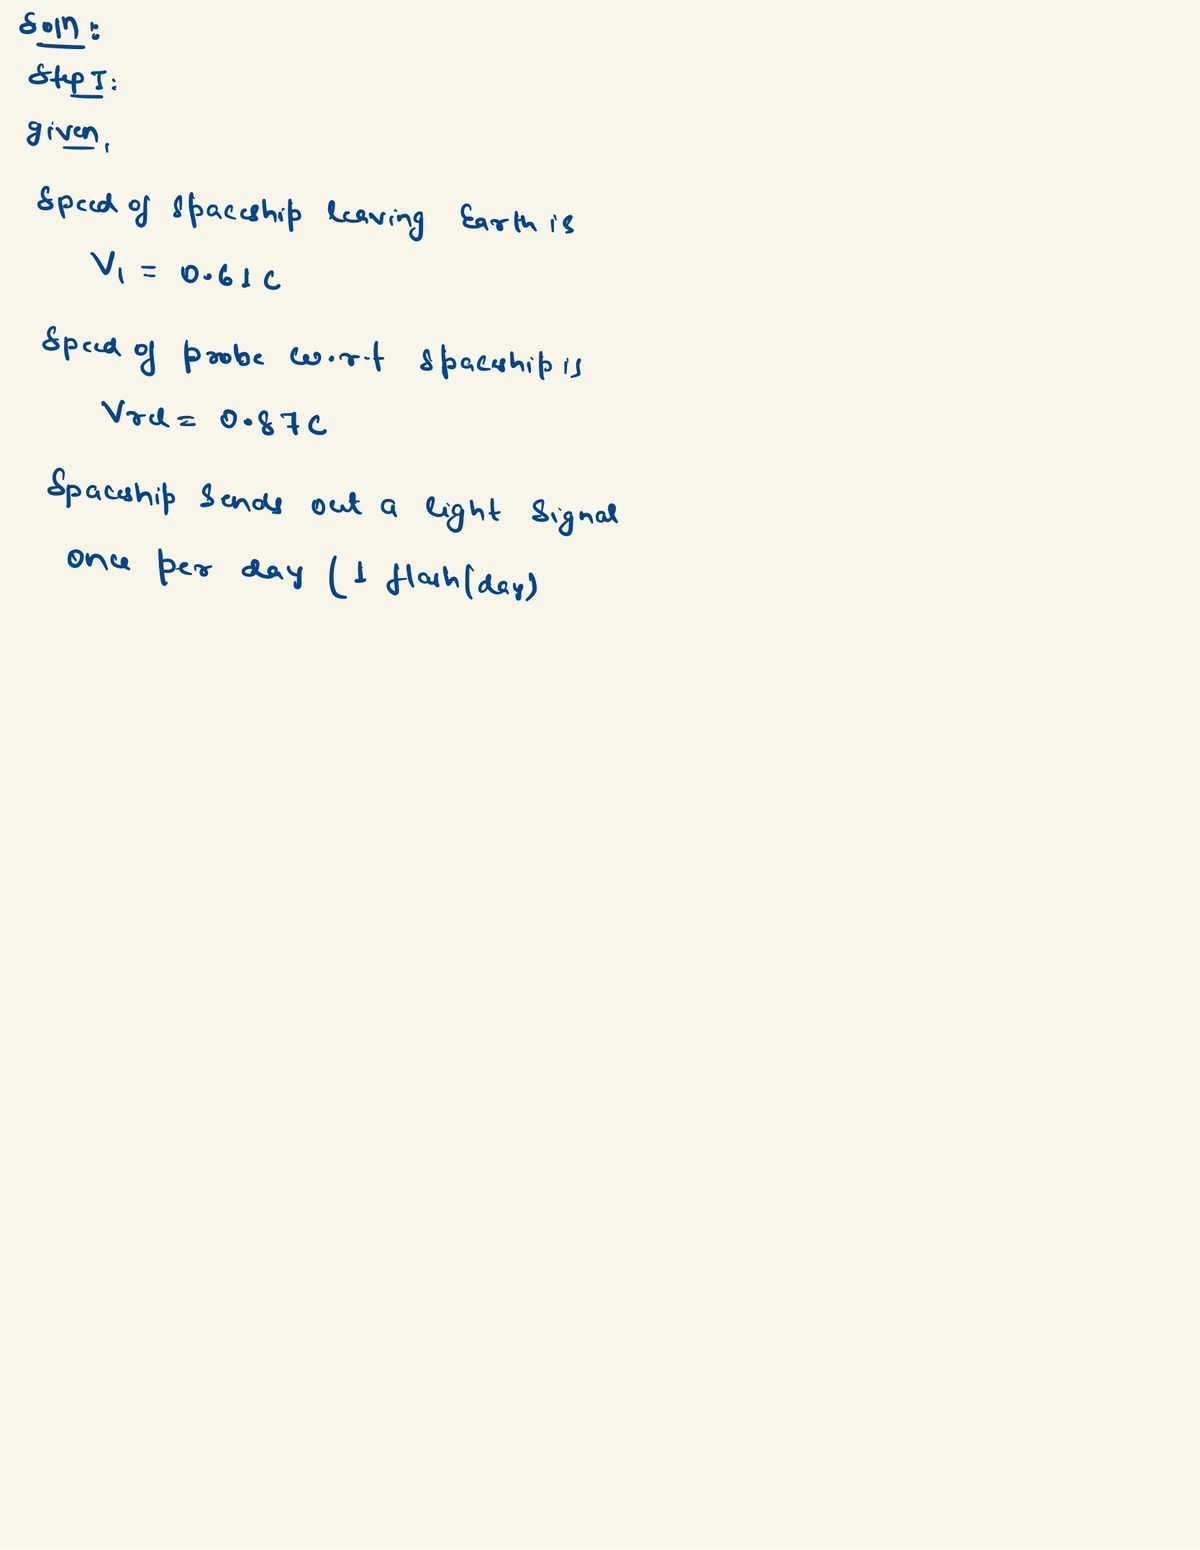 Soln:
Step I:
given,
Speed of spaceship leaving Earth is
V₁ = 0.61C
Speed of probe w.r.t spaceship is
Vrel = 0.87C
Spaceship sends out a light signal
once per day (1 flash/day)